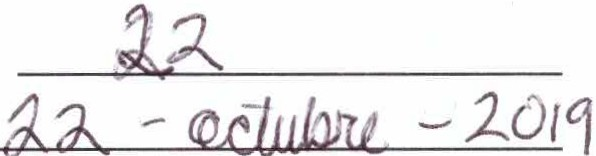 22
22 - octubre - 2019